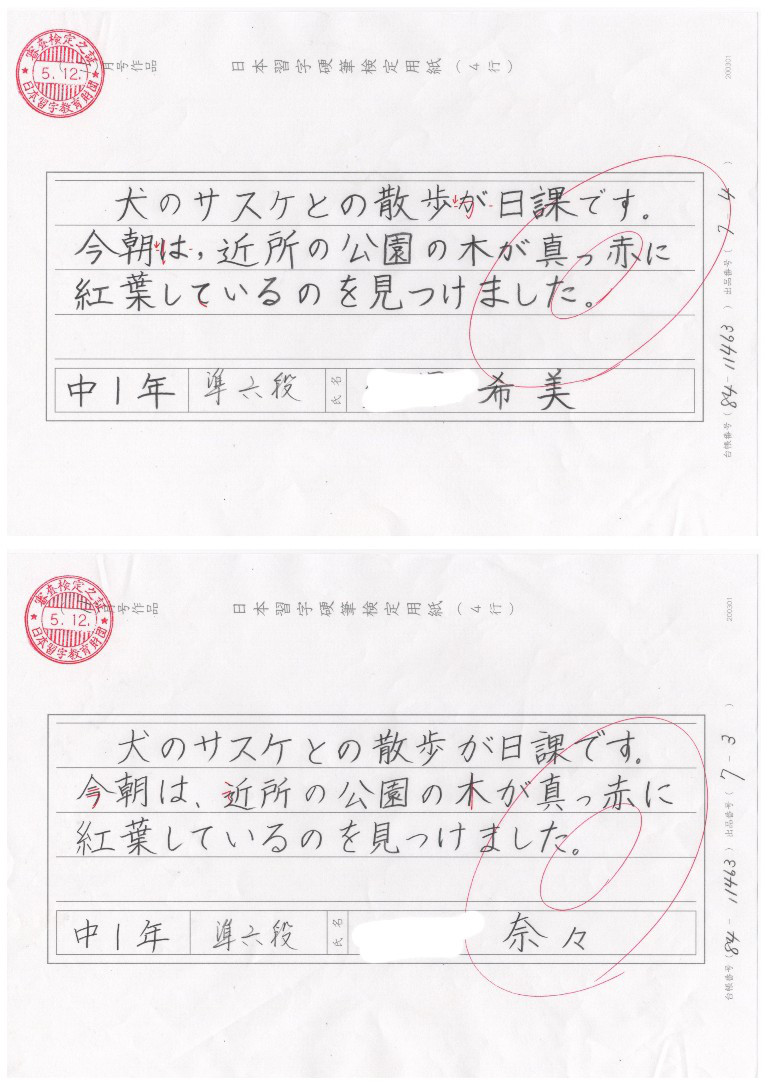 審査検定之証
5.12.
日本習字教育財団
月号作品
日本習字硬筆検定用紙(4行)
200301
犬のサスケとの散歩が日課です。
今朝は,近所の公園の木が真っ赤に
紅葉しているのを見つけました。
中1年 準六段 氏名 希美
台帳番号(84-11463)出品番号(7-4)
審査検定之証
5.12.
日本習字教育財団
月号作品
日本習字硬筆検定用紙(4行)
200301
犬のサスケとの散歩が日課です。
今朝は、近所の公園の木が真っ赤に
紅葉しているのを見つけました。
中1年 準六段 氏名 奈々
台帳番号(84-11463)出品番号(7-3)